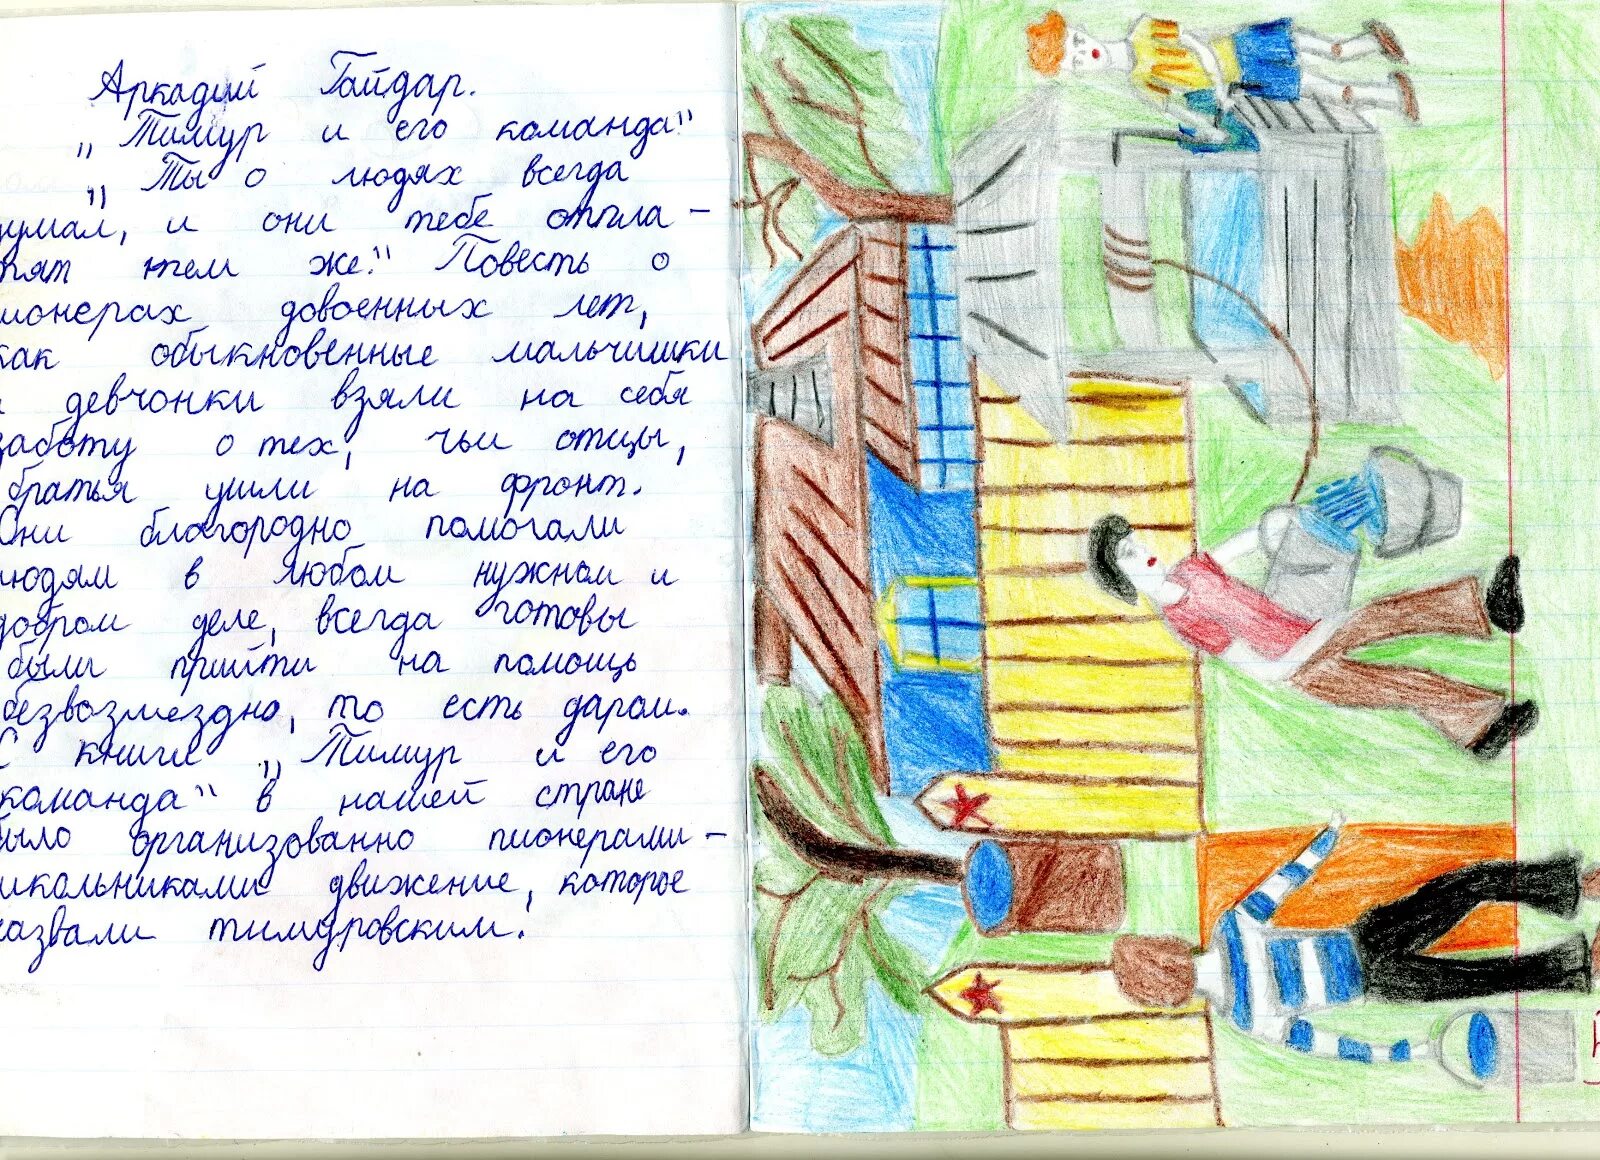 Аркадий Гайдар.
„Тимур и его команда"
„Ты о людях всегда
думал, и они тебе отпла-
тят тем же." Повесть о
пионерах довоенных лет,
как обыкновенные мальчишки
и девчонки взяли на себя
заботу о тех, чьи отцы,
братья ушли на фронт.
Они благородно помогали
людям в любом нужном и
добром деле, всегда готовы
были прийти на помощь
безвозмездно, то есть даром.
С книги „Тимур и его
команда" в нашей стране
было организованно пионерами-
школьниками движение, которое
назвали тимуровским.